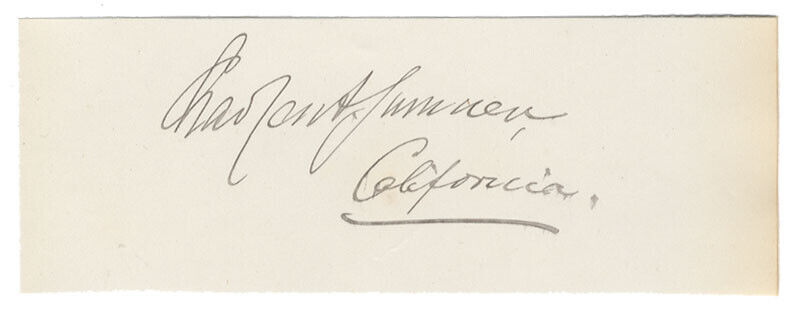 Charles A. Sumner,
California.